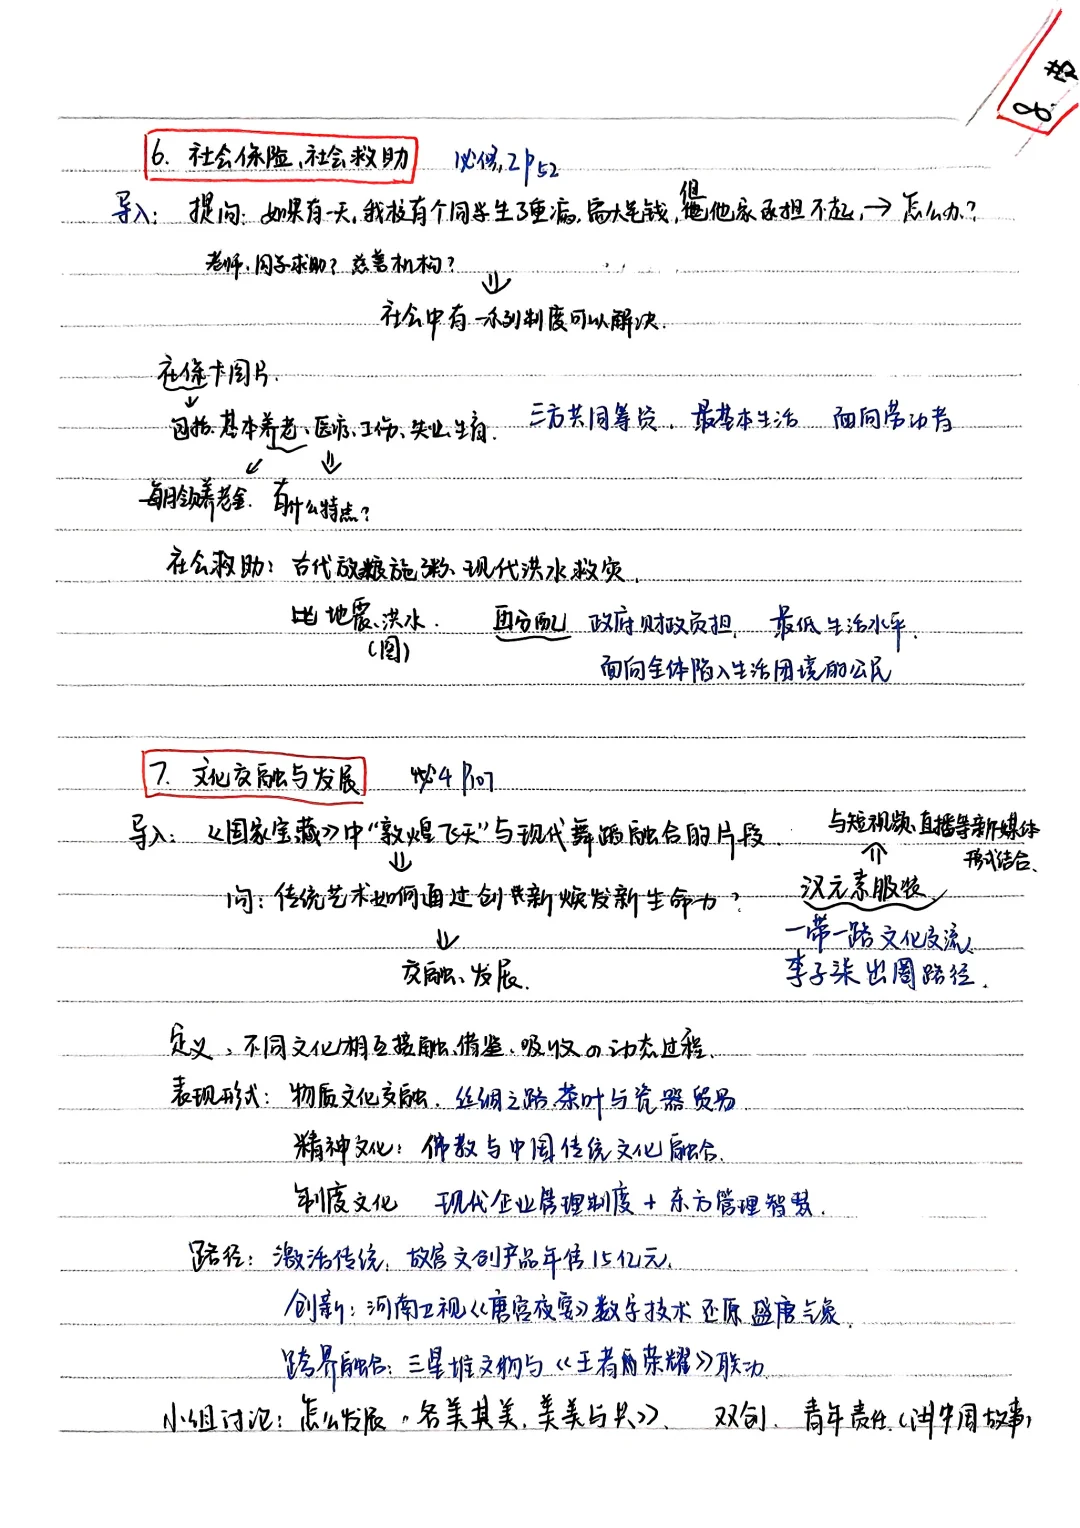 8. 劳
6. 社会保险、社会救助 必修2 P52
导入: 提问: 如果有一天,我校有个同学生了重病,需大笔钱,但他家承担不起,→ 怎么办?
老师、同学求助? 慈善机构?
社会中有一系列制度可以解决.
社保卡图片.
包括:基本养老、医疗、工伤、失业、生育. 三方共同筹资, 最基本生活 面向劳动者
每月领养老金. 有什么特点?
社会救助: 古代放粮施粥、现代洪水救灾.
比 地震、洪水. 再分配 政府财政负担, 最低生活水平.
(图) 面向全体陷入生活困境的公民
7. 文化交融与发展 必4 P107
导入: 《国家宝藏》中“敦煌飞天”与现代舞蹈融合的片段. 与短视频、直播等新媒体
形式结合.
问: 传统艺术如何通过创新焕发新生命力? 汉元素服装
一带一路文化交流
交融、发展. 李子柒出圈路径.
定义、不同文化相互接触、借鉴、吸收の动态过程.
表现形式: 物质文化交融. 丝绸之路、茶叶与瓷器贸易
精神文化: 佛教与中国传统文化融合.
制度文化 现代企业管理制度 + 东方管理智慧.
路径: 激活传统, 故宫文创产品年售15亿元.
创新: 河南卫视《唐宫夜宴》数字技术还原盛唐气象.
跨界融合: 三星堆文物与《王者荣耀》联动.
小组讨论: 怎么发展 “各美其美,美美与共》. 双创. 青年责任.(讲中国故事)